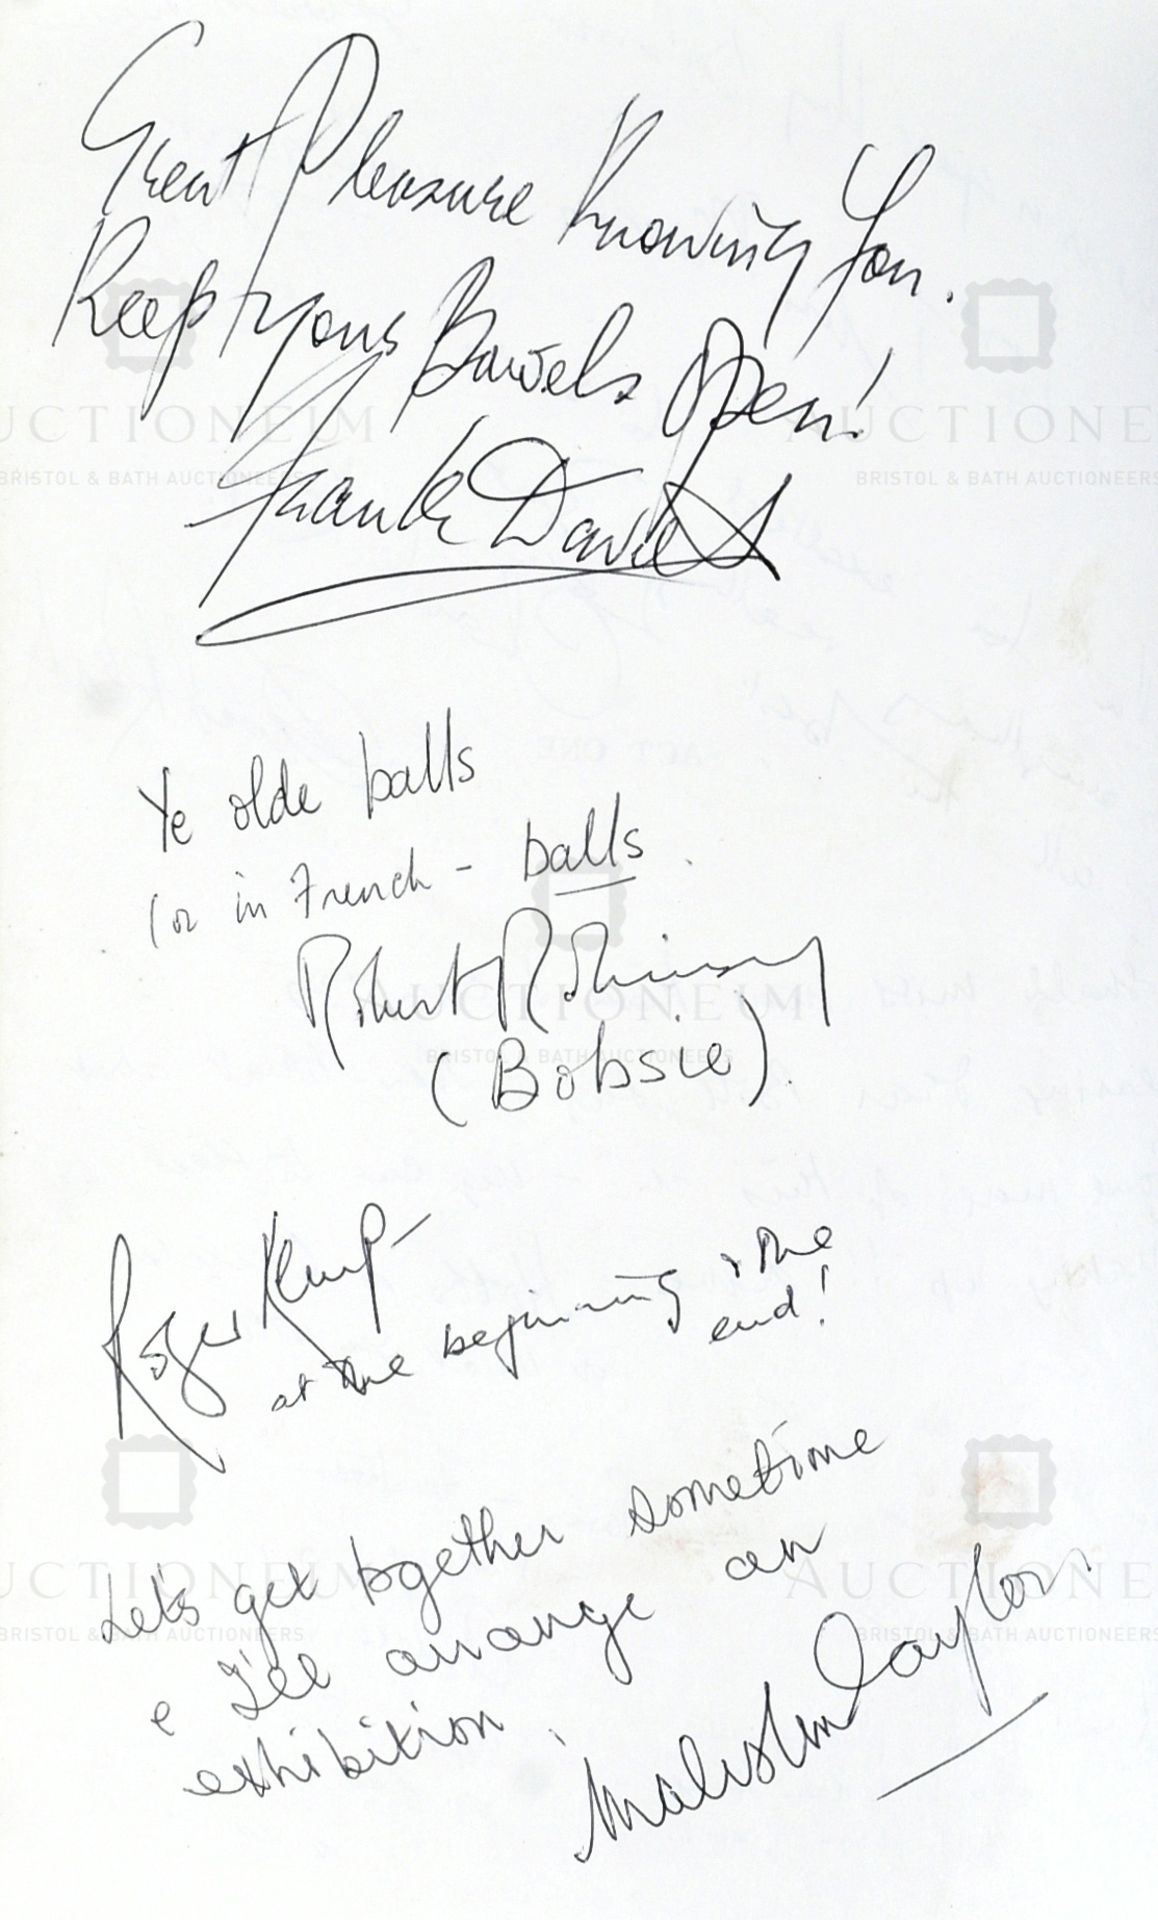 Great Pleasure Knowing You.
Keep your Bowels Open!
Frank David
Ye olde balls
(or in French - balls.
Robert Robinson
(Bobsie).
Roger Kemp -
at the beginning & the
end!
Let's get together sometime
e I'll arrange an
exhibition.
Malcolm Taylor
AUCTIONEUM
BRISTOL & BATH AUCTIONEERS
AUCTIONE
BRISTOL & BATH AUCTIONEERS
AUCTIONEUM
BRISTOL & BATH AUCTIONEERS
UCTIONEUM
BRISTOL & BATH AUCTIONEERS
AUCTIONE
BRISTOL & BATH AUCTIONEERS
ACT ONE